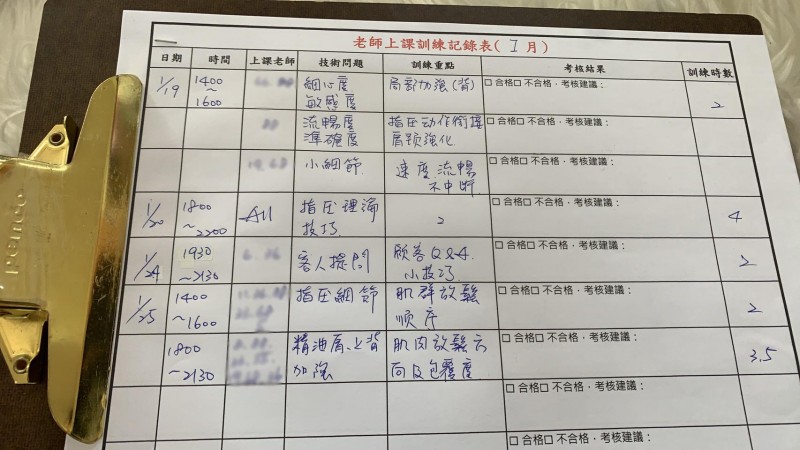 老師上課訓練記錄表( 1 月)
日期 時間 上課老師 技術問題 訓練重點 考核結果 訓練時數
1/19 1400 ~ 1600 細心度 敏感度 局部加強(背) □ 合格□ 不合格，考核建議： 2
流暢度 準確度 指压动作銜接 肩頸強化 □ 合格□ 不合格，考核建議：
小細節 速度流暢 不中断 □ 合格□ 不合格，考核建議：
1/20 1800 ~2200 All 指压理論 技巧 2 □ 合格□ 不合格，考核建議： 4
1/24 1930 ~2130 客人提問 顧客Q&A. 小技巧 □ 合格□ 不合格，考核建議： 2
1/25 1400 ~1600 指压細節 肌群放鬆 順序 □ 合格□ 不合格，考核建議： 2
1800 ~2130 精油肩、上背 加強 肌肉放鬆方 向及包覆度 □ 合格□ 不合格，考核建議： 3.5
□ 合格□ 不合格，考核建議：
□ 合格□ 不合格，考核建議：
Pendo